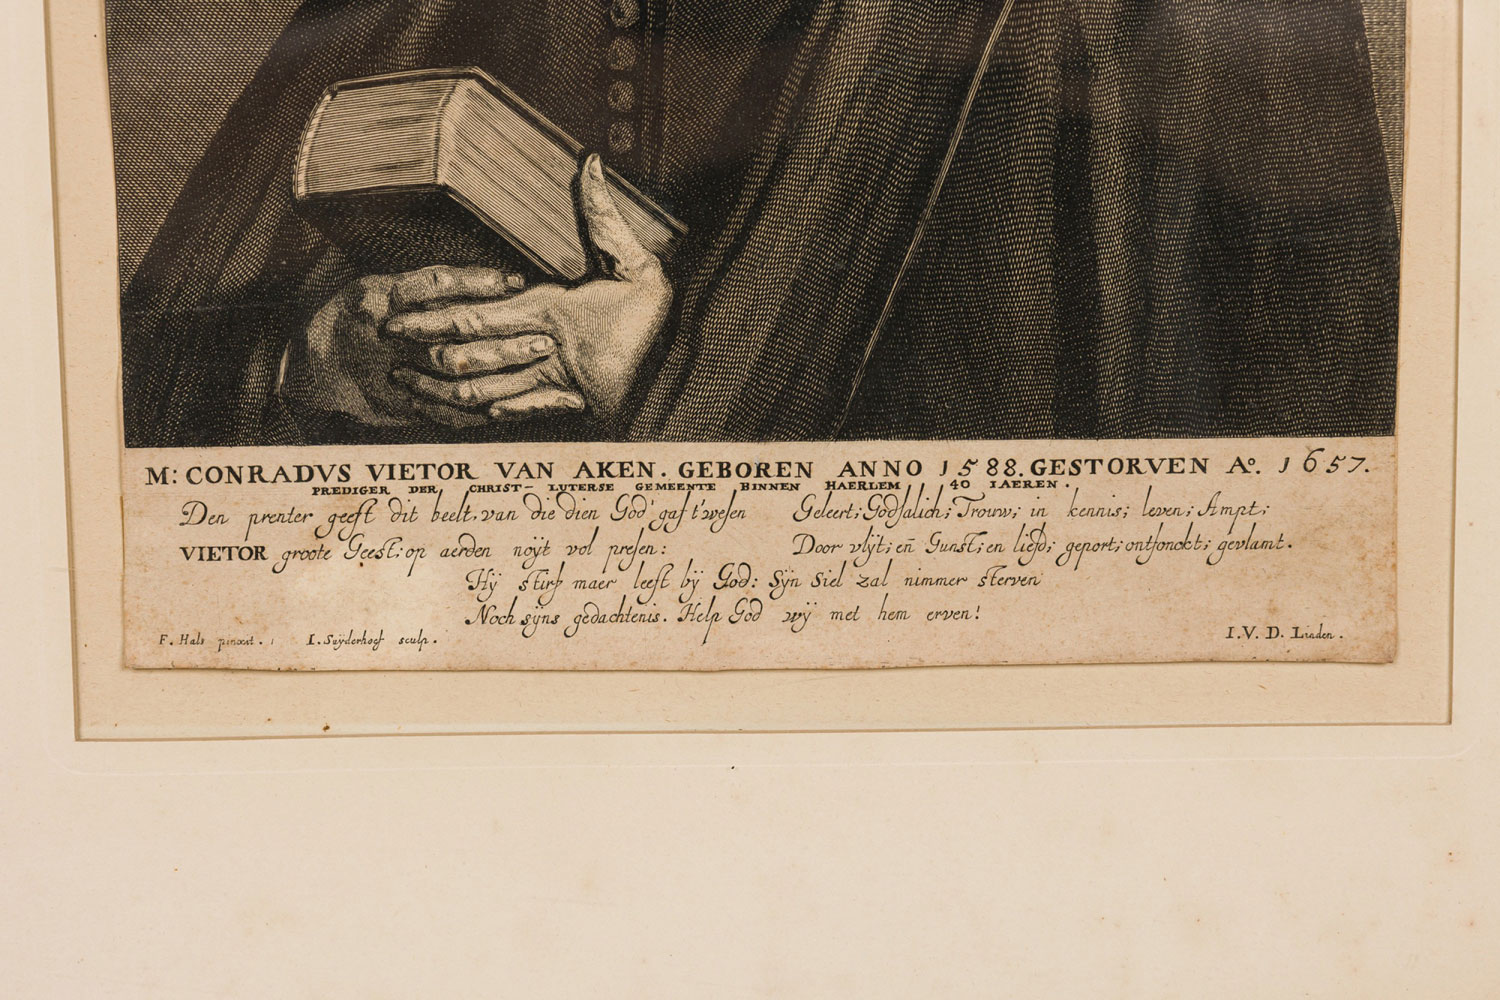 M: CONRADVS VIETOR VAN AKEN. GEBOREN ANNO 1588. GESTORVEN Aº. 1657.
PREDIGER DER CHRIST- LUTERSE GEMEENTE BINNEN HAERLEM 40 IAEREN.
Den prenter geeft dit beelt, van die dien God' gaf t'wesen
VIETOR groote Geest: op aerden nöÿt vol presen:
Geleert; Godsalich; Trouw; in kennis; leven; Ampt;
Door vlÿt; en̄ Gunst; en liefd; geport; ontfonckt; gevlamt.
Hÿ stirf maer leeft bÿ God: Sÿn Siel zal nimmer sterven
Noch sÿns gedachtenis. Help God wÿ met hem erven!
F. Hals pinxit. I. Suÿderhoef sculp.
I. V. D. Linden.